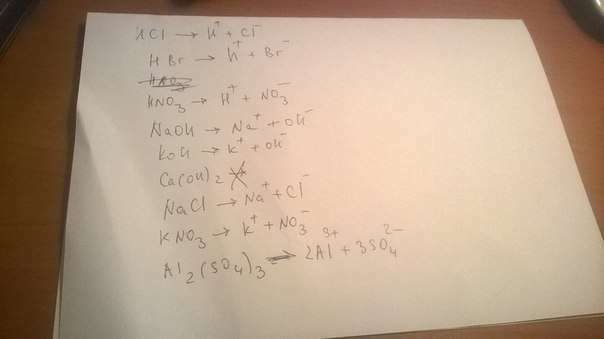 HCl → H⁺ + Cl⁻
HBr → H⁺ + Br⁻
HNO₃ → H⁺ + NO₃⁻
NaOH → Na⁺ + OH⁻
KOH → K⁺ + OH⁻
Ca(OH)₂
NaCl → Na⁺ + Cl⁻
KNO₃ → K⁺ + NO₃⁻
Al₂(SO₄)₃ → 2Al³⁺ + 3SO₄²⁻